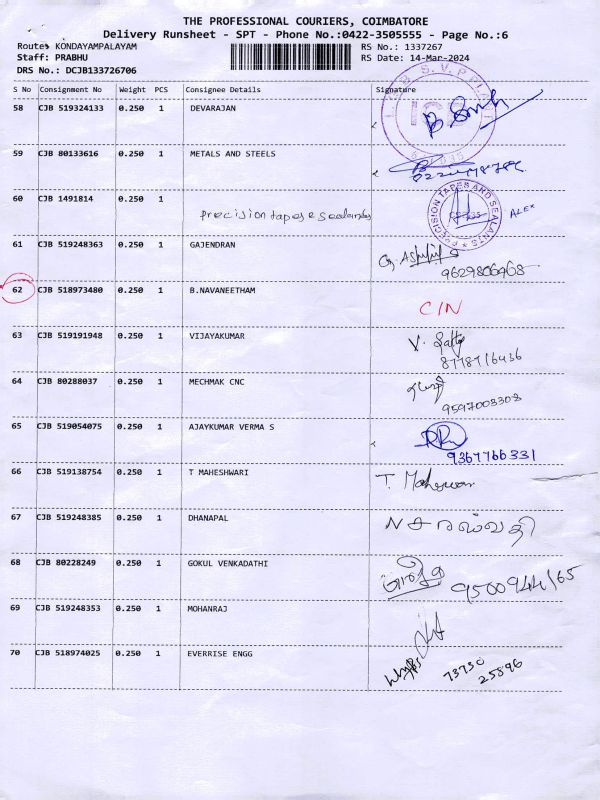 THE PROFESSIONAL COURIERS, COIMBATORE
Delivery Runsheet - SPT - Phone No.:0422-3505555 - Page No.:6
Route: KONDAYAMPALAYAM RS No.: 1337267
Staff: PRABHU RS Date: 14-Mar-2024
DRS No.: DCJB133726706
S No Consignment No Weight PCS Consignee Details Signature
58 CJB 519324133 0.250 1 DEVARAJAN
59 CJB 80133616 0.250 1 METALS AND STEELS
60 CJB 1491814 0.250 1 Precision tapes & sealants PRECISION TAPES AND SEALANTS ALEX
61 CJB 519248363 0.250 1 GAJENDRAN
9629806968
62 CJB 518973480 0.250 1 B.NAVANEETHAM C/N
63 CJB 519191948 0.250 1 VIJAYAKUMAR V.
8778716436
64 CJB 80288037 0.250 1 MECHMAK CNC
9597003303
65 CJB 519054075 0.250 1 AJAYKUMAR VERMA S
9367766331
66 CJB 519138754 0.250 1 T MAHESHWARI T.
67 CJB 519248385 0.250 1 DHANAPAL N சரஸ்வதி
68 CJB 80228249 0.250 1 GOKUL VENKADATHI 9500944165
69 CJB 519248353 0.250 1 MOHANRAJ
70 CJB 518974025 0.250 1 EVERRISE ENGG 73730
25896